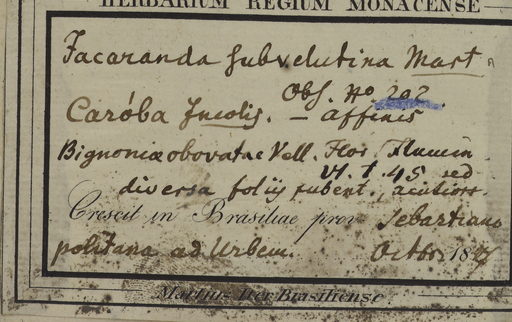 HERBARIUM REGIUM MONACENSE
Jacaranda subvelutina Mart
Obs. No. 292.
Caróba Incolis. — affinis
Bignoniae obovatae Vell. Flor. Flumin
VI. t. 45 sed
diversa foliis subent., acutiors.
Crescit in Brasiliae prov. Sebastiano
politana ad Urbem. Octbr. 18
Martius Iter Brasiliense